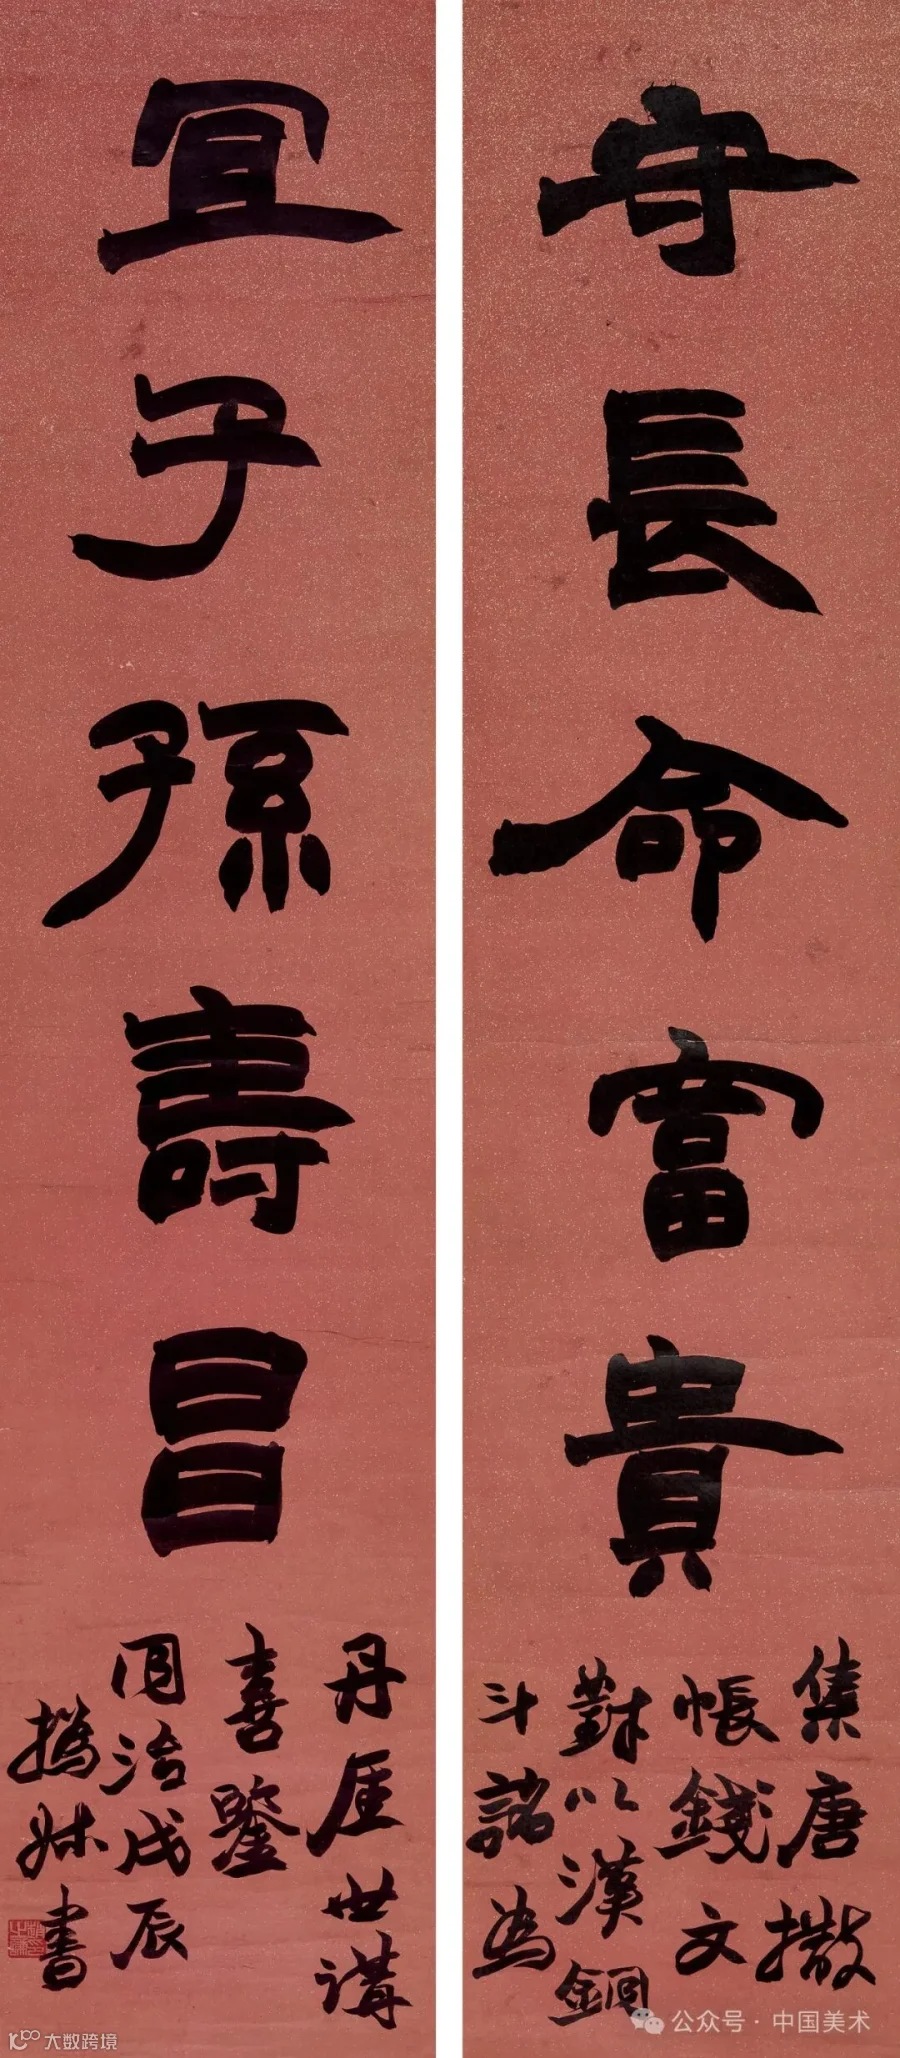 守長命富貴
集唐撒
帳錢文
對以漢銅
斗詺為
宜子孫壽昌
丹厓世講
喜鑒
同治戊辰
撝叔書
公众号 · 中国美术
大数跨境